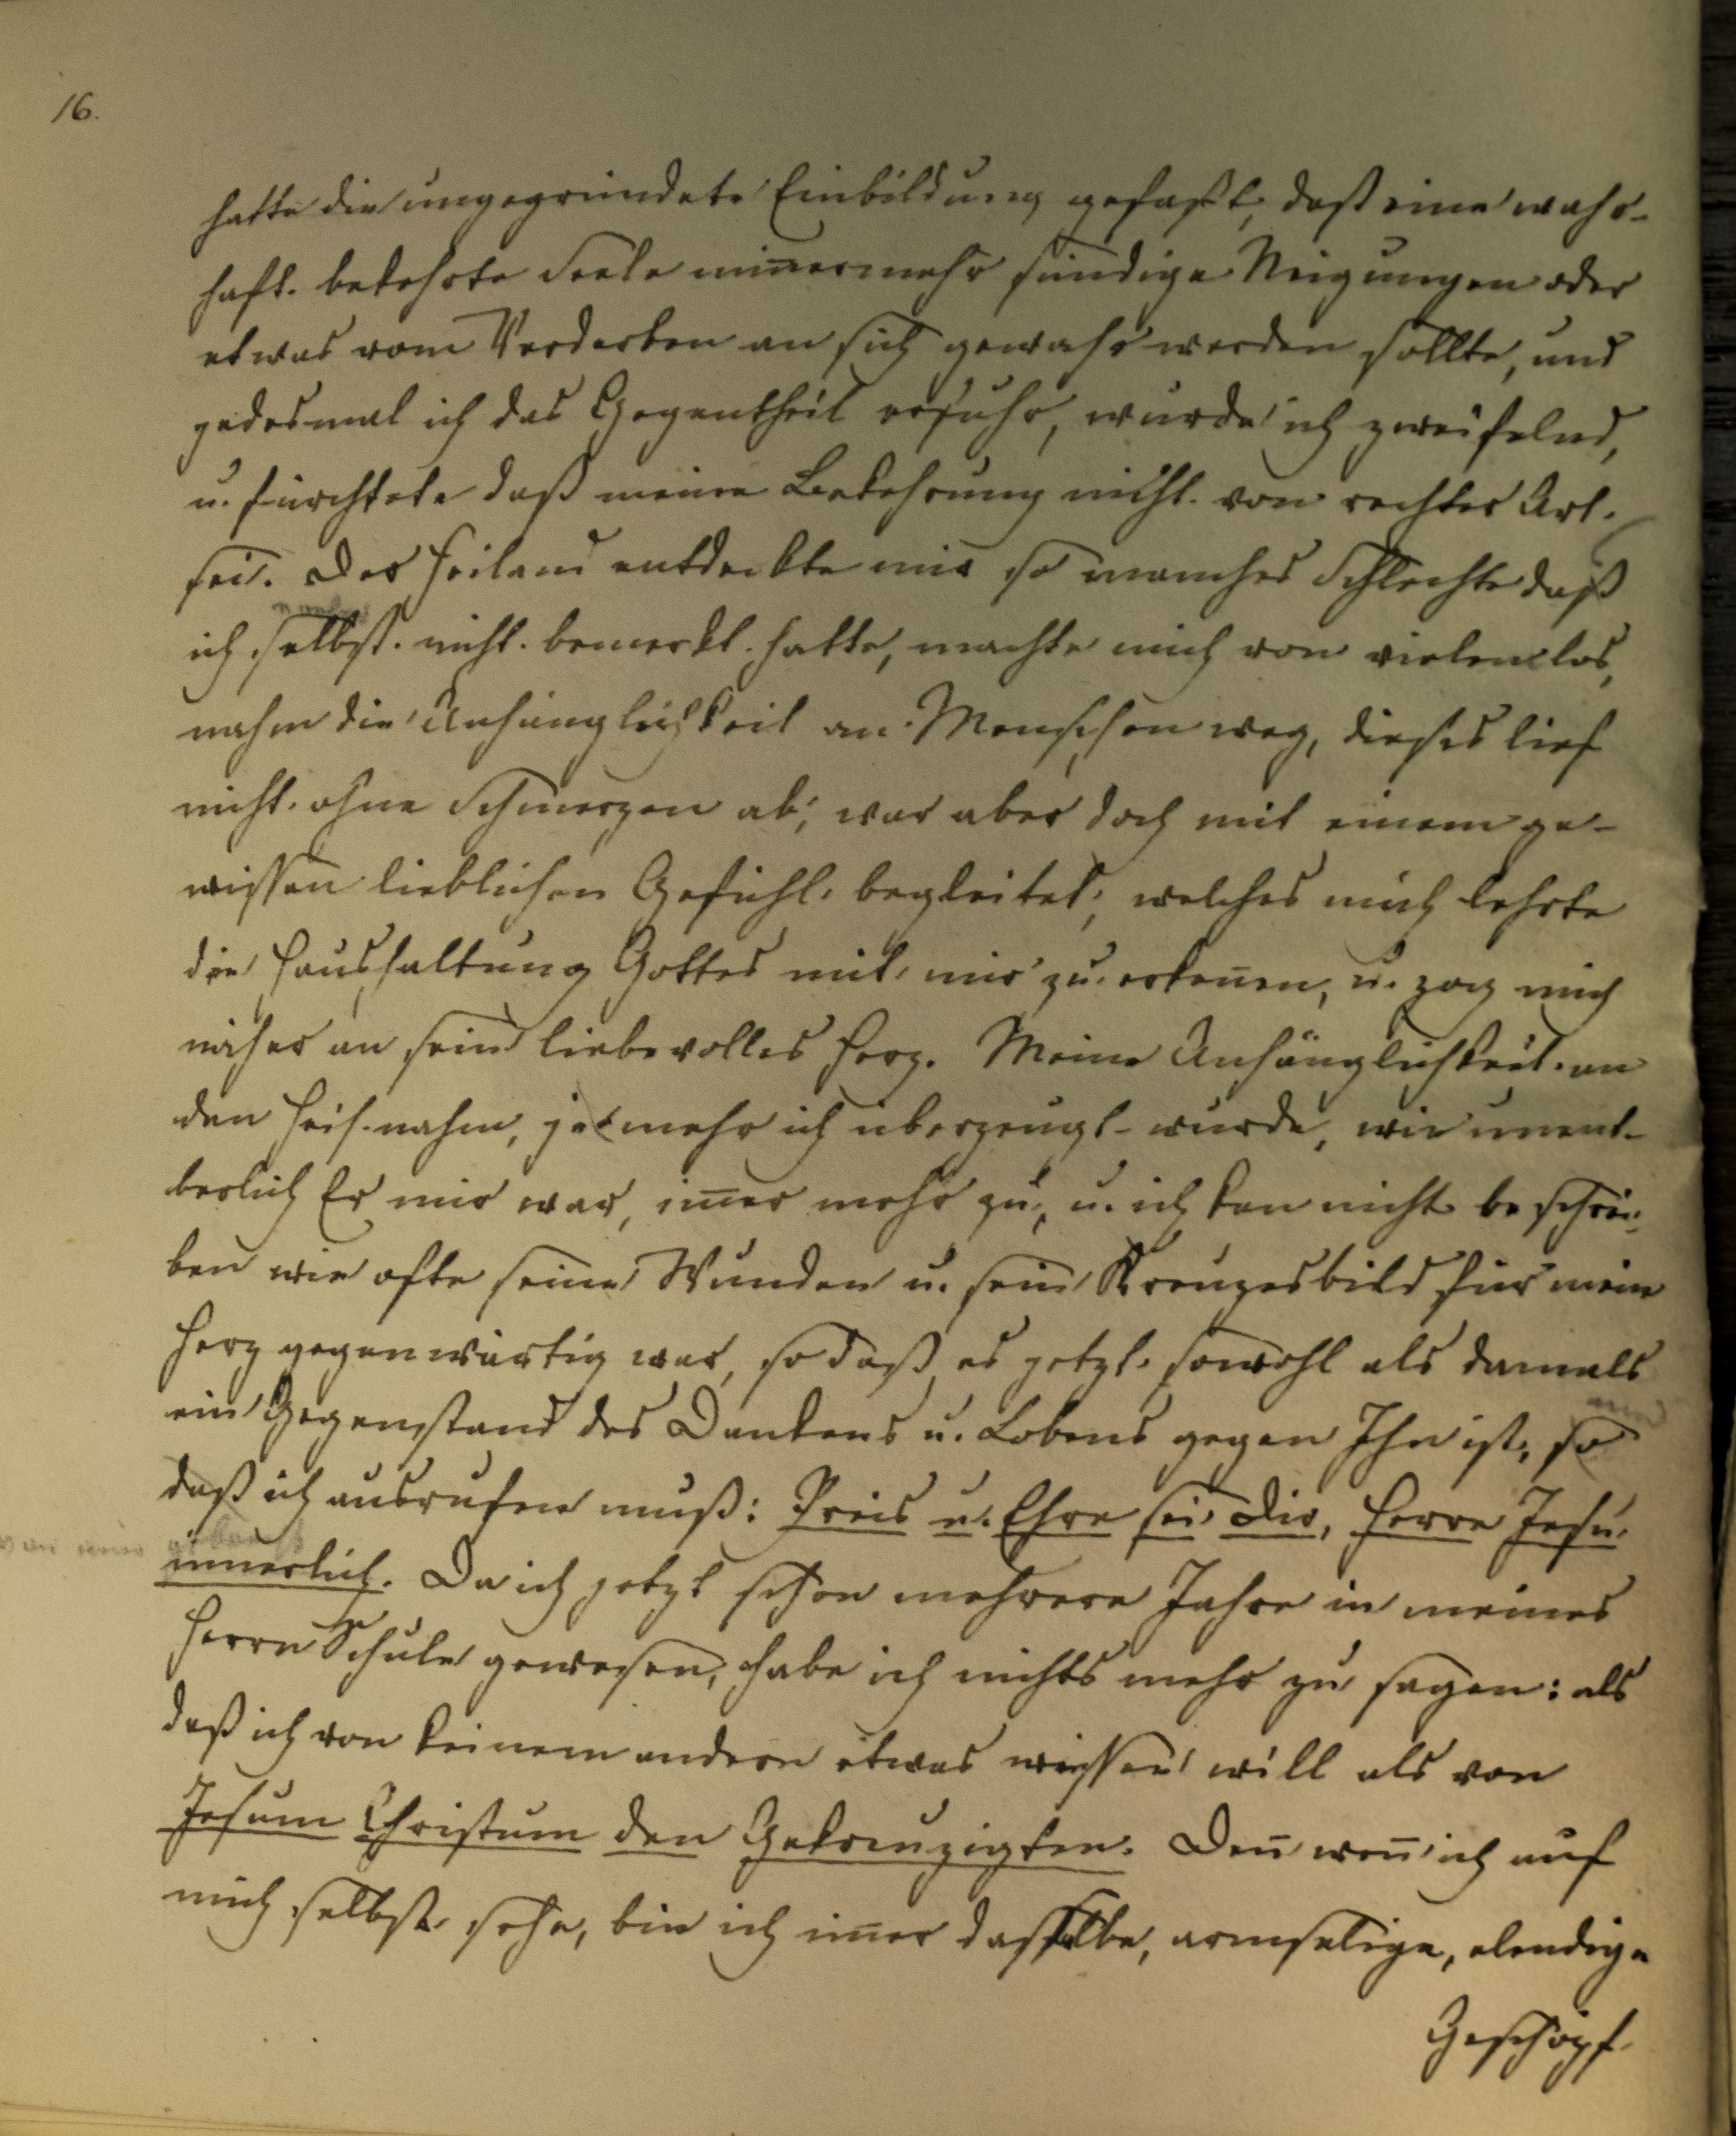 16.
hatte die ungegründete Einbildung gefaßt, daß eine wahr-
haft bekehrte Seele nim̅ermehr sündige Neigungen oder
etwas vom Verderben an sich gewahr werden sollte, und
jedesmal ich das Gegentheil erfuhr, wurde ich zweifelnd,
u. fürchtete daß meine Bekehrung nicht von rechter Art
sei. Der Heiland entdeckte mir so manches Schlechte daß
ich selbst nicht bemerkt hatte, machte mich von vielen los,
nahm die Anhänglichkeit an Menschen weg, dieses lief
nicht ohne Schmerzen ab; war aber doch mit einem ge-
wissen lieblichen Gefühl begleitet; welches mich lehrte
die Haushaltung Gottes mit mir zu erken̅en, u. zog mich
näher an sein liebevolles Herz. Meine Anhänglichkeit an
den Heil. nahm, je mehr ich überzeugt wurde, wie unent-
berlich Er mir war, im̅er mehr zu, u. ich kan nicht beschrei-
ben wie ofte seine Wunden u. sein Kreuzesbild für mein
Herz gegenwärtig war, so daß es jetzt sowohl als damals
ein Gegenstand des Dankens u. Lobens gegen Ihn ist, so
daß ich ausrufen muß: Preis u. Ehre sei Dir, Herre Jesu
innerlich. Da ich jetzt schon mehrere Jahre in meines
Herrn Schule gewesen, habe ich nichts mehr zu sagen: als
daß ich von keinem andern etwas wissen will als von
Jesum Christum den Gekreuzigten. Den̅ wen̅ ich auf
mich selbst sehe, bin ich im̅er dasselbe, armselige, elendige
Geschöpf